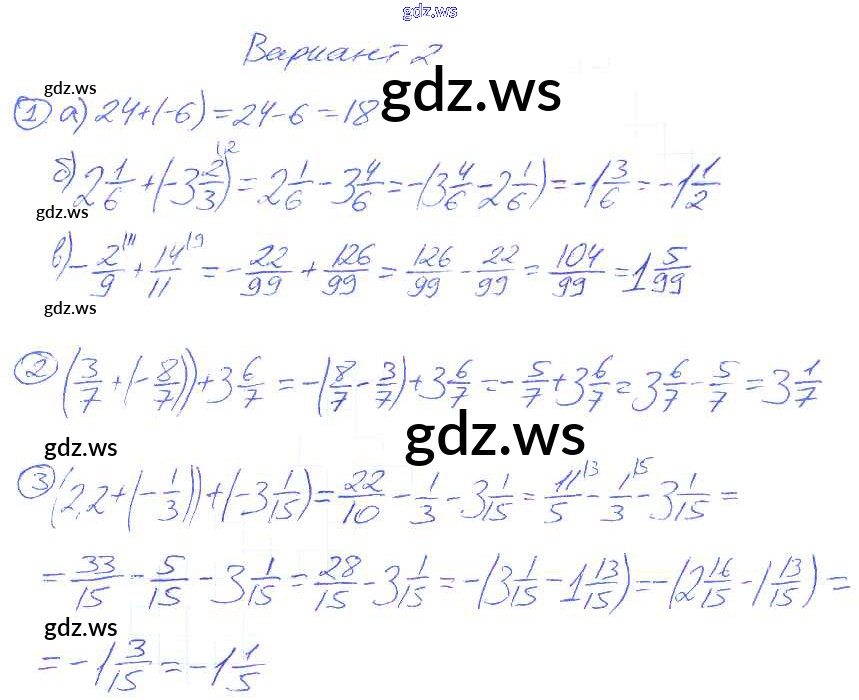 gdz.ws
Вариант 2
gdz.ws
gdz.ws
① а) 24+(-6)=24-6=18
б) 2 1/6 + (-3 2/3) = 2 1/6 - 3 4/6 = -(3 4/6 - 2 1/6) = -1 3/6 = -1 1/2
gdz.ws
в) -2/9 + 14/11 = -22/99 + 126/99 = 126/99 - 22/99 = 104/99 = 1 5/99
gdz.ws
② (3/7 + (-8/7)) + 3 6/7 = -(8/7 - 3/7) + 3 6/7 = -5/7 + 3 6/7 = 3 6/7 - 5/7 = 3 1/7
gdz.ws
gdz.ws
③ (2,2 + (-1/3)) + (-3 1/15) = 22/10 - 1/3 - 3 1/15 = 11/5 - 1/3 - 3 1/15 =
= 33/15 - 5/15 - 3 1/15 = 28/15 - 3 1/15 = -(3 1/15 - 1 13/15) = -(2 16/15 - 1 13/15) =
gdz.ws
= -1 3/15 = -1 1/5